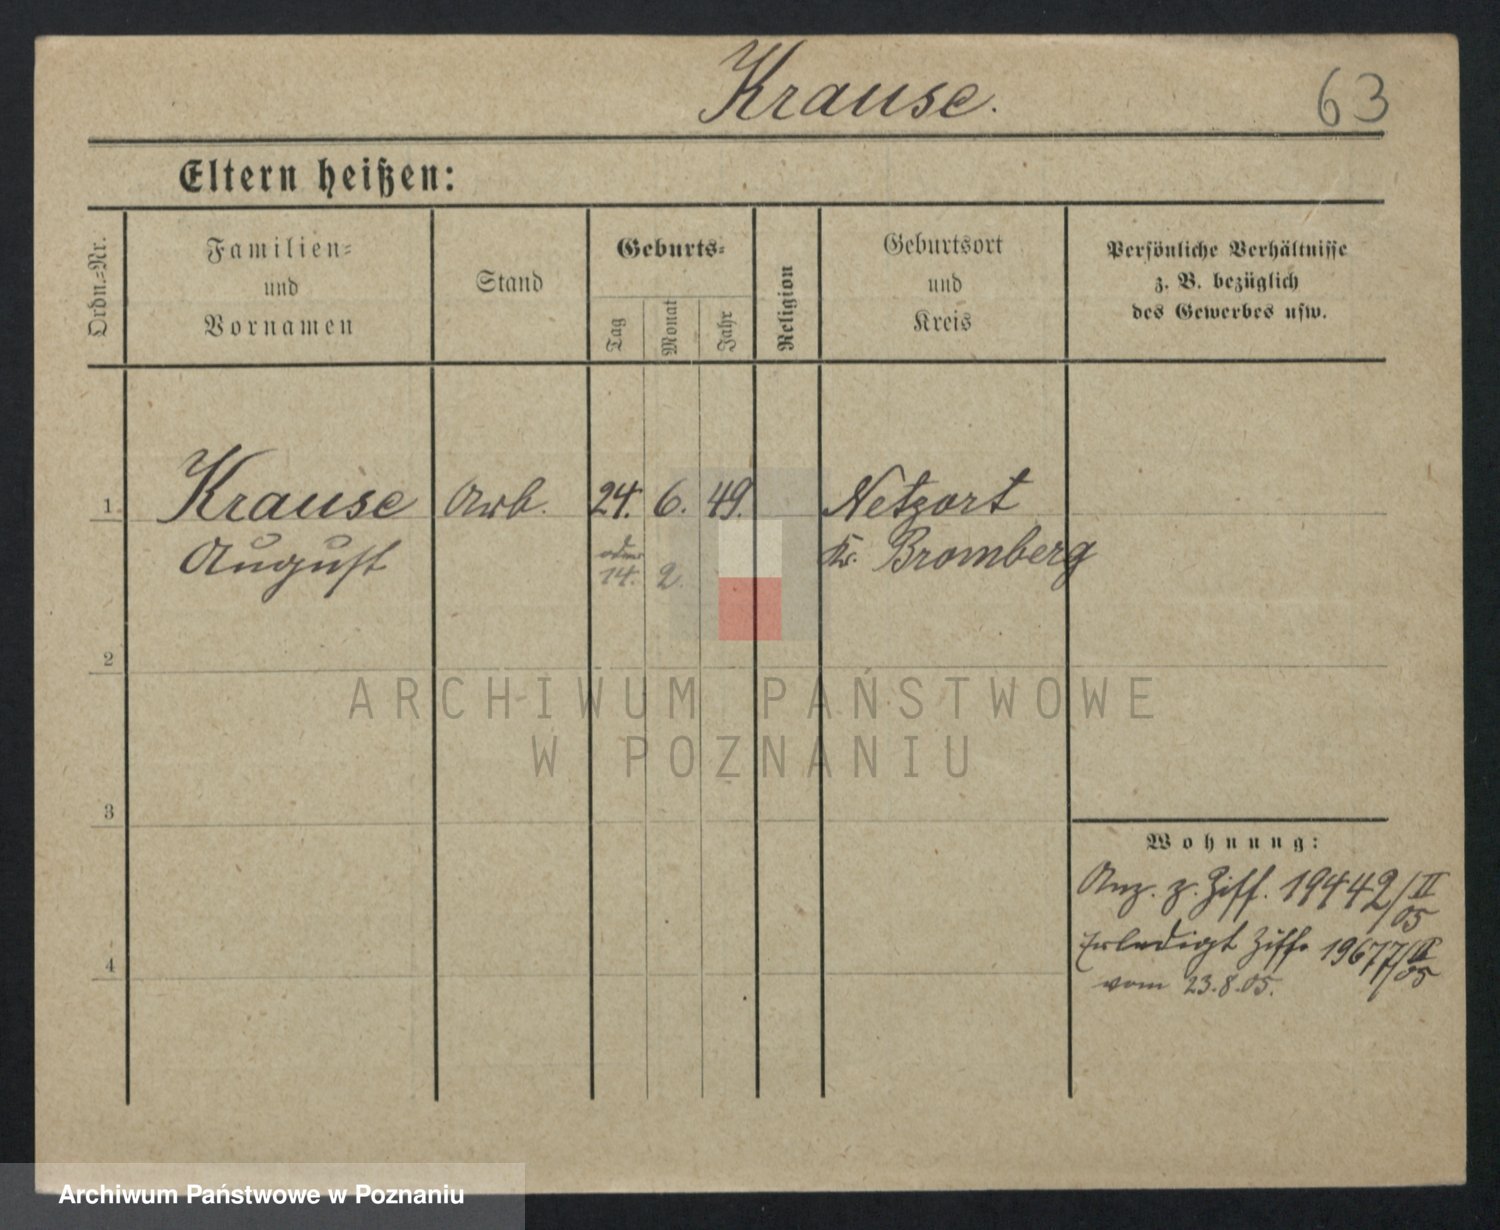 Krause.
63
Eltern heißen:
Ordn.=Nr.
Familien=
und
Vornamen
Stand
Geburts=
Tag
Monat
Jahr
Religion
Geburtsort
und
Kreis
Persönliche Verhältnisse
z. B. bezüglich
des Gewerbes usw.
1. Krause Arb. 24. 6. 49. Netzort
August oder 14. 2. Kr. Bromberg
2
3
4
Wohnung:
Anz. z. Ziff. 19442/II
05
Erledigt Ziff. 19677/II
05
vom 23.8.05.
ARCHIWUM PAŃSTWOWE
W POZNANIU
Archiwum Państwowe w Poznaniu